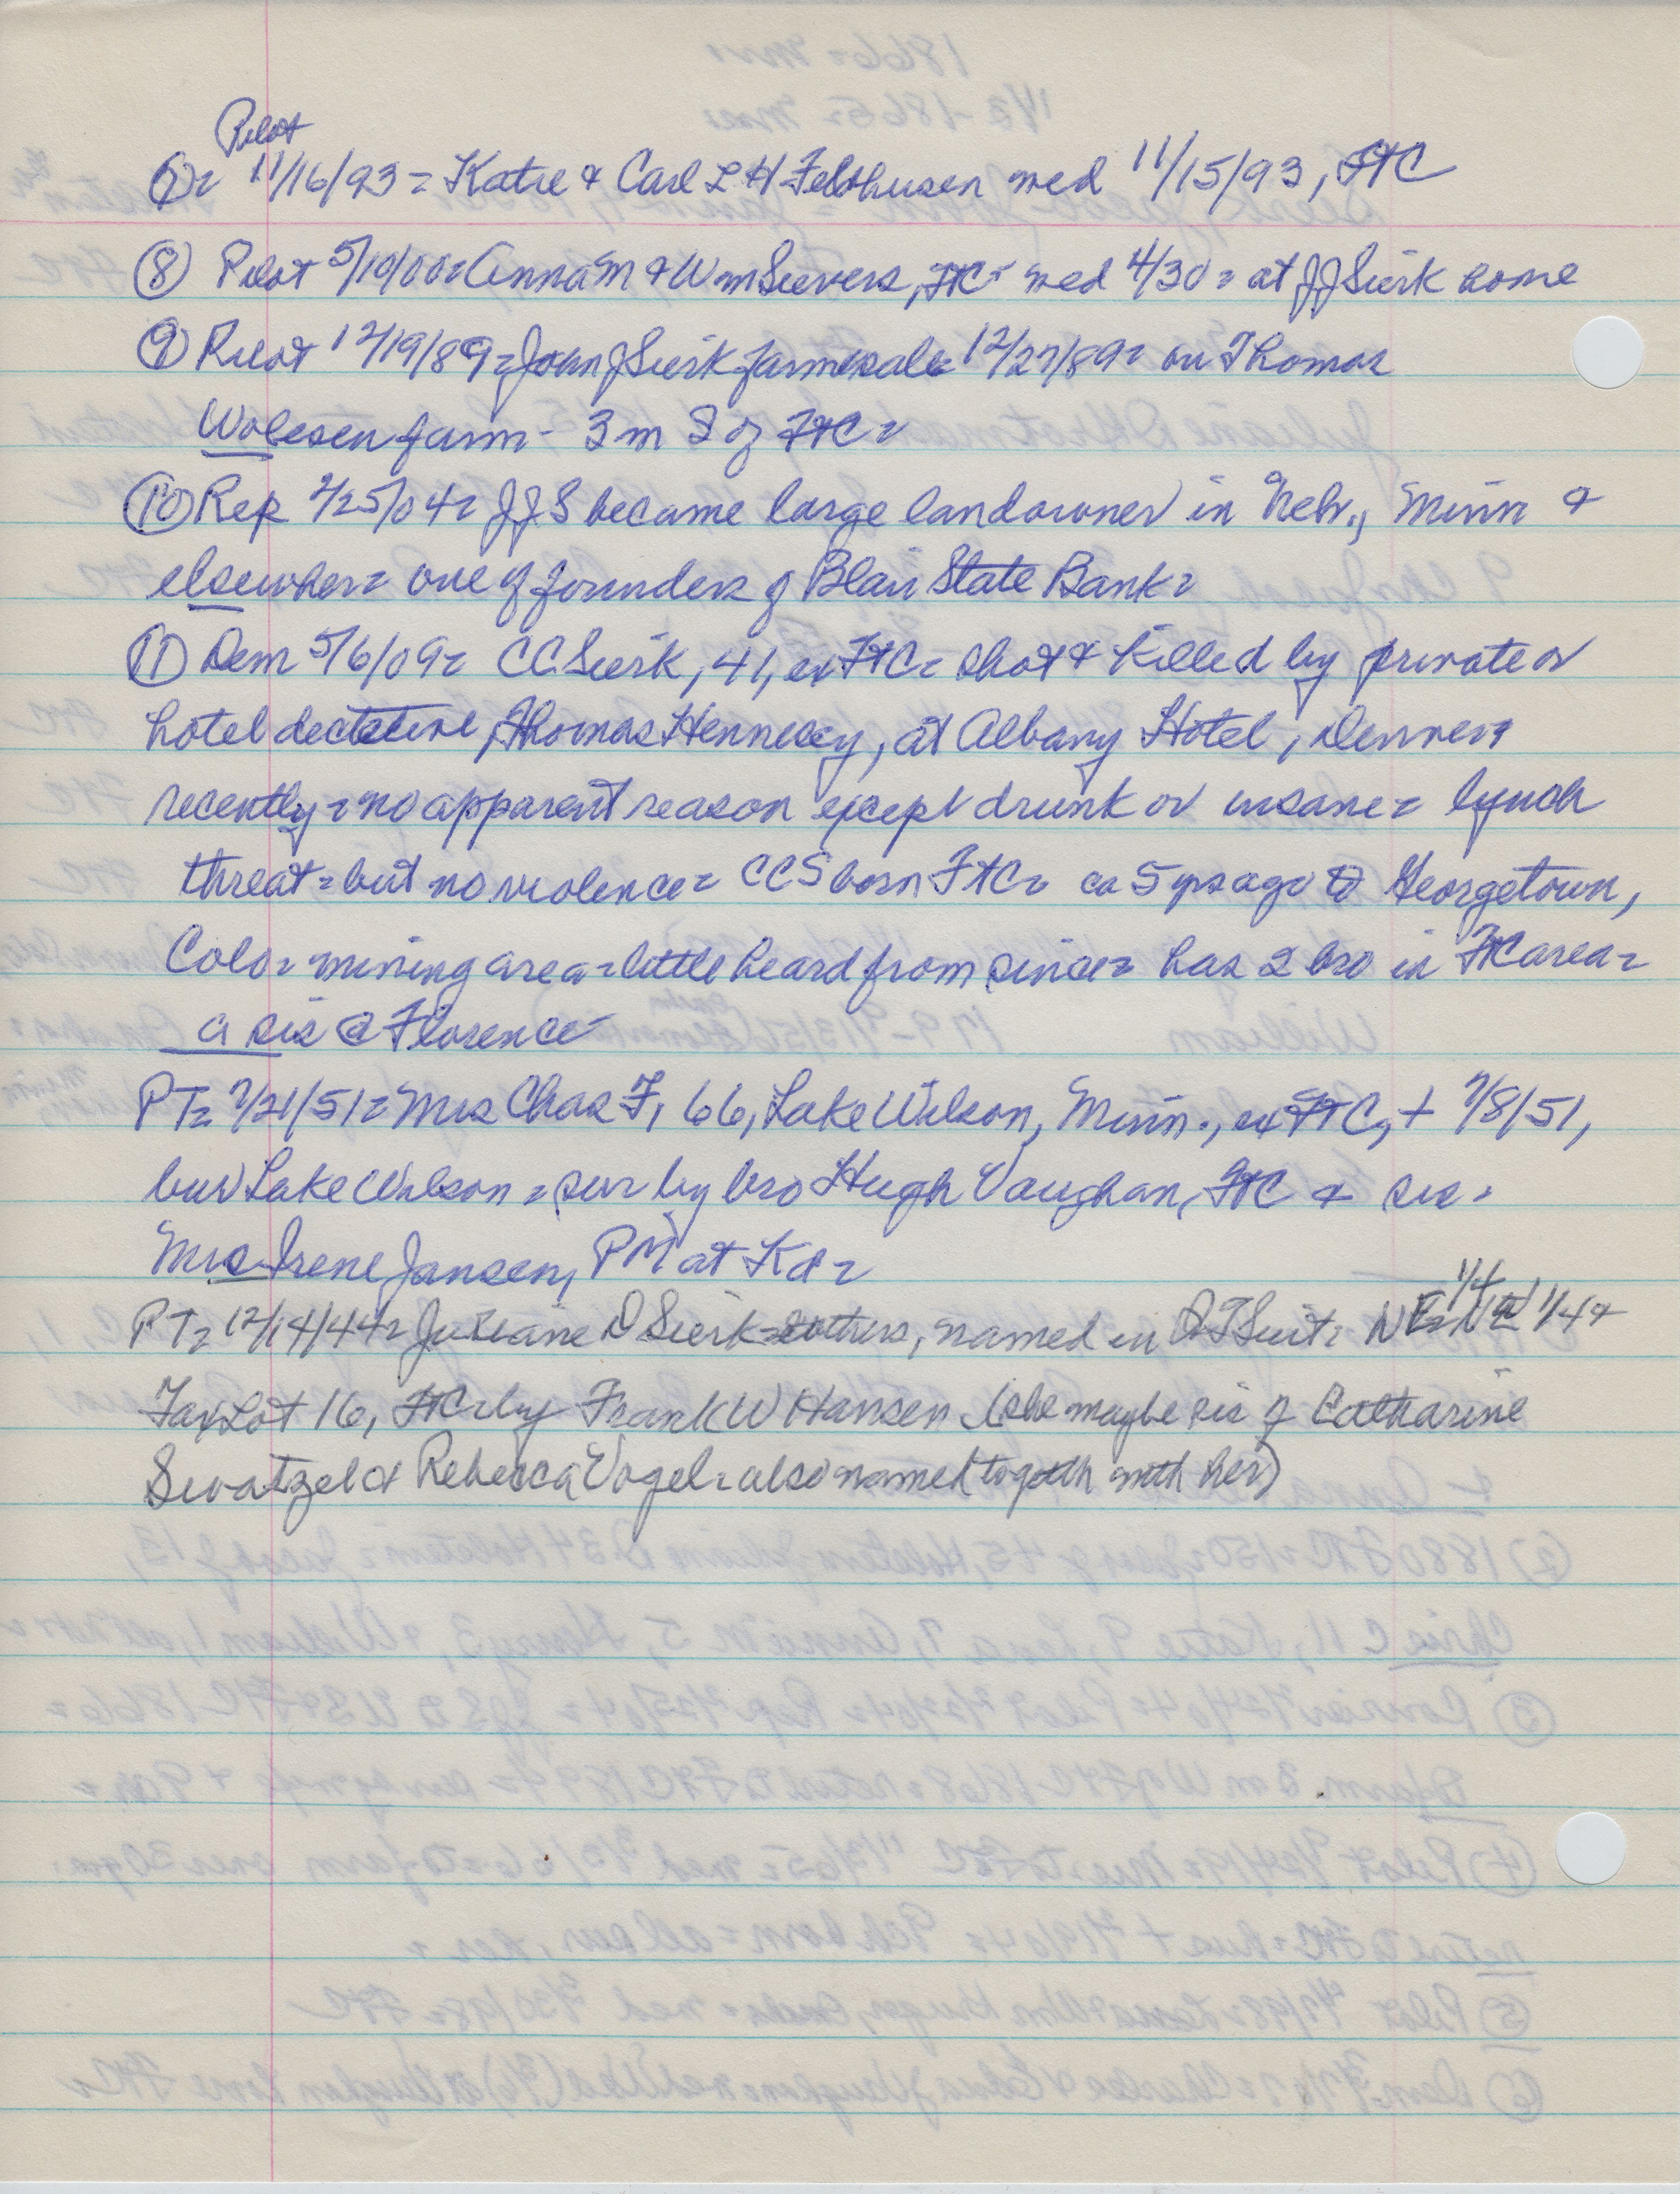 Pilot
⑦= 11/16/93= Katie & Carl L H Feldhusen wed 11/15/93, FtC
⑧ Pilot 5/10/00= Anna M & Wm Sievers, FtC= wed 4/30= at J J Sierk home
⑨ Pilot 12/19/89= John J Sierk farm sale 12/27/89= on Thomas
Wolesen farm - 3 m S of FtC=
⑩ Rep 2/25/04= J J S became large landowner in Nebr., Minn &
elsewhere= one of founders of Blair State Bank=
⑪ Dem 5/6/09= C C Sierk, 41, ex FtC= shot & killed by private or
hotel dectetive, Thomas Hennesey, at Albany Hotel, Denver,
recently= no apparent reason except drunk or insane= lynch
threat= but no violence= C C S born FtC= ca 5 yrs ago to Georgetown,
Colo= mining area= little heard from since= has 2 bro in FtC area=
a sis @ Florence=
PT= 7/21/51= Mrs Chas F, 66, Lake Wilson, Minn., ex FtC, + 7/8/51,
bur Lake Wilson= sur by bro Hugh Vaughan, FtC & sis=
Mrs Irene Jansen, PM at Kd=
PT= 12/14/44= Juliane D Sierk= others, named in QT Suit= 1/4 & 
Tax Lot 16, FtC= by Frank W Hansen (she maybe sis of Catharine
Swatzel & Rebecca Vogel= also named togeth with her)